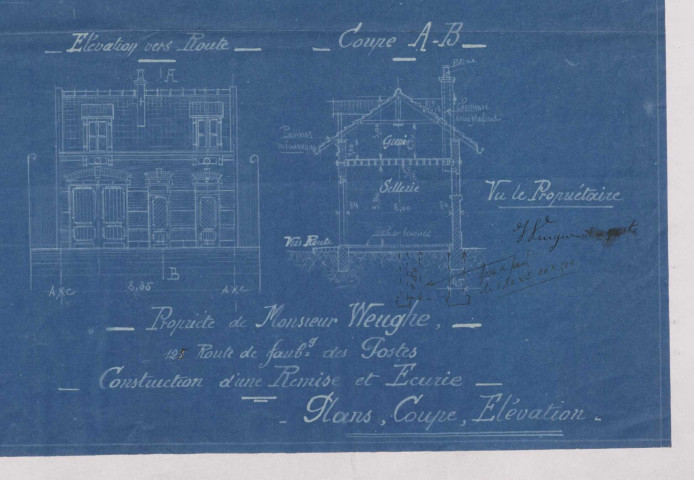 Elévation vers Route
Coupe A-B
A
Grenier
Sellerie
Vers Route
Vu le Propriétaire
B
Axe 5,05 Axe
Propriété de Monsieur Weughe,
125 Route de faubg des Postes
Construction d'une Remise et Ecurie
Plans, Coupe, Elévation.